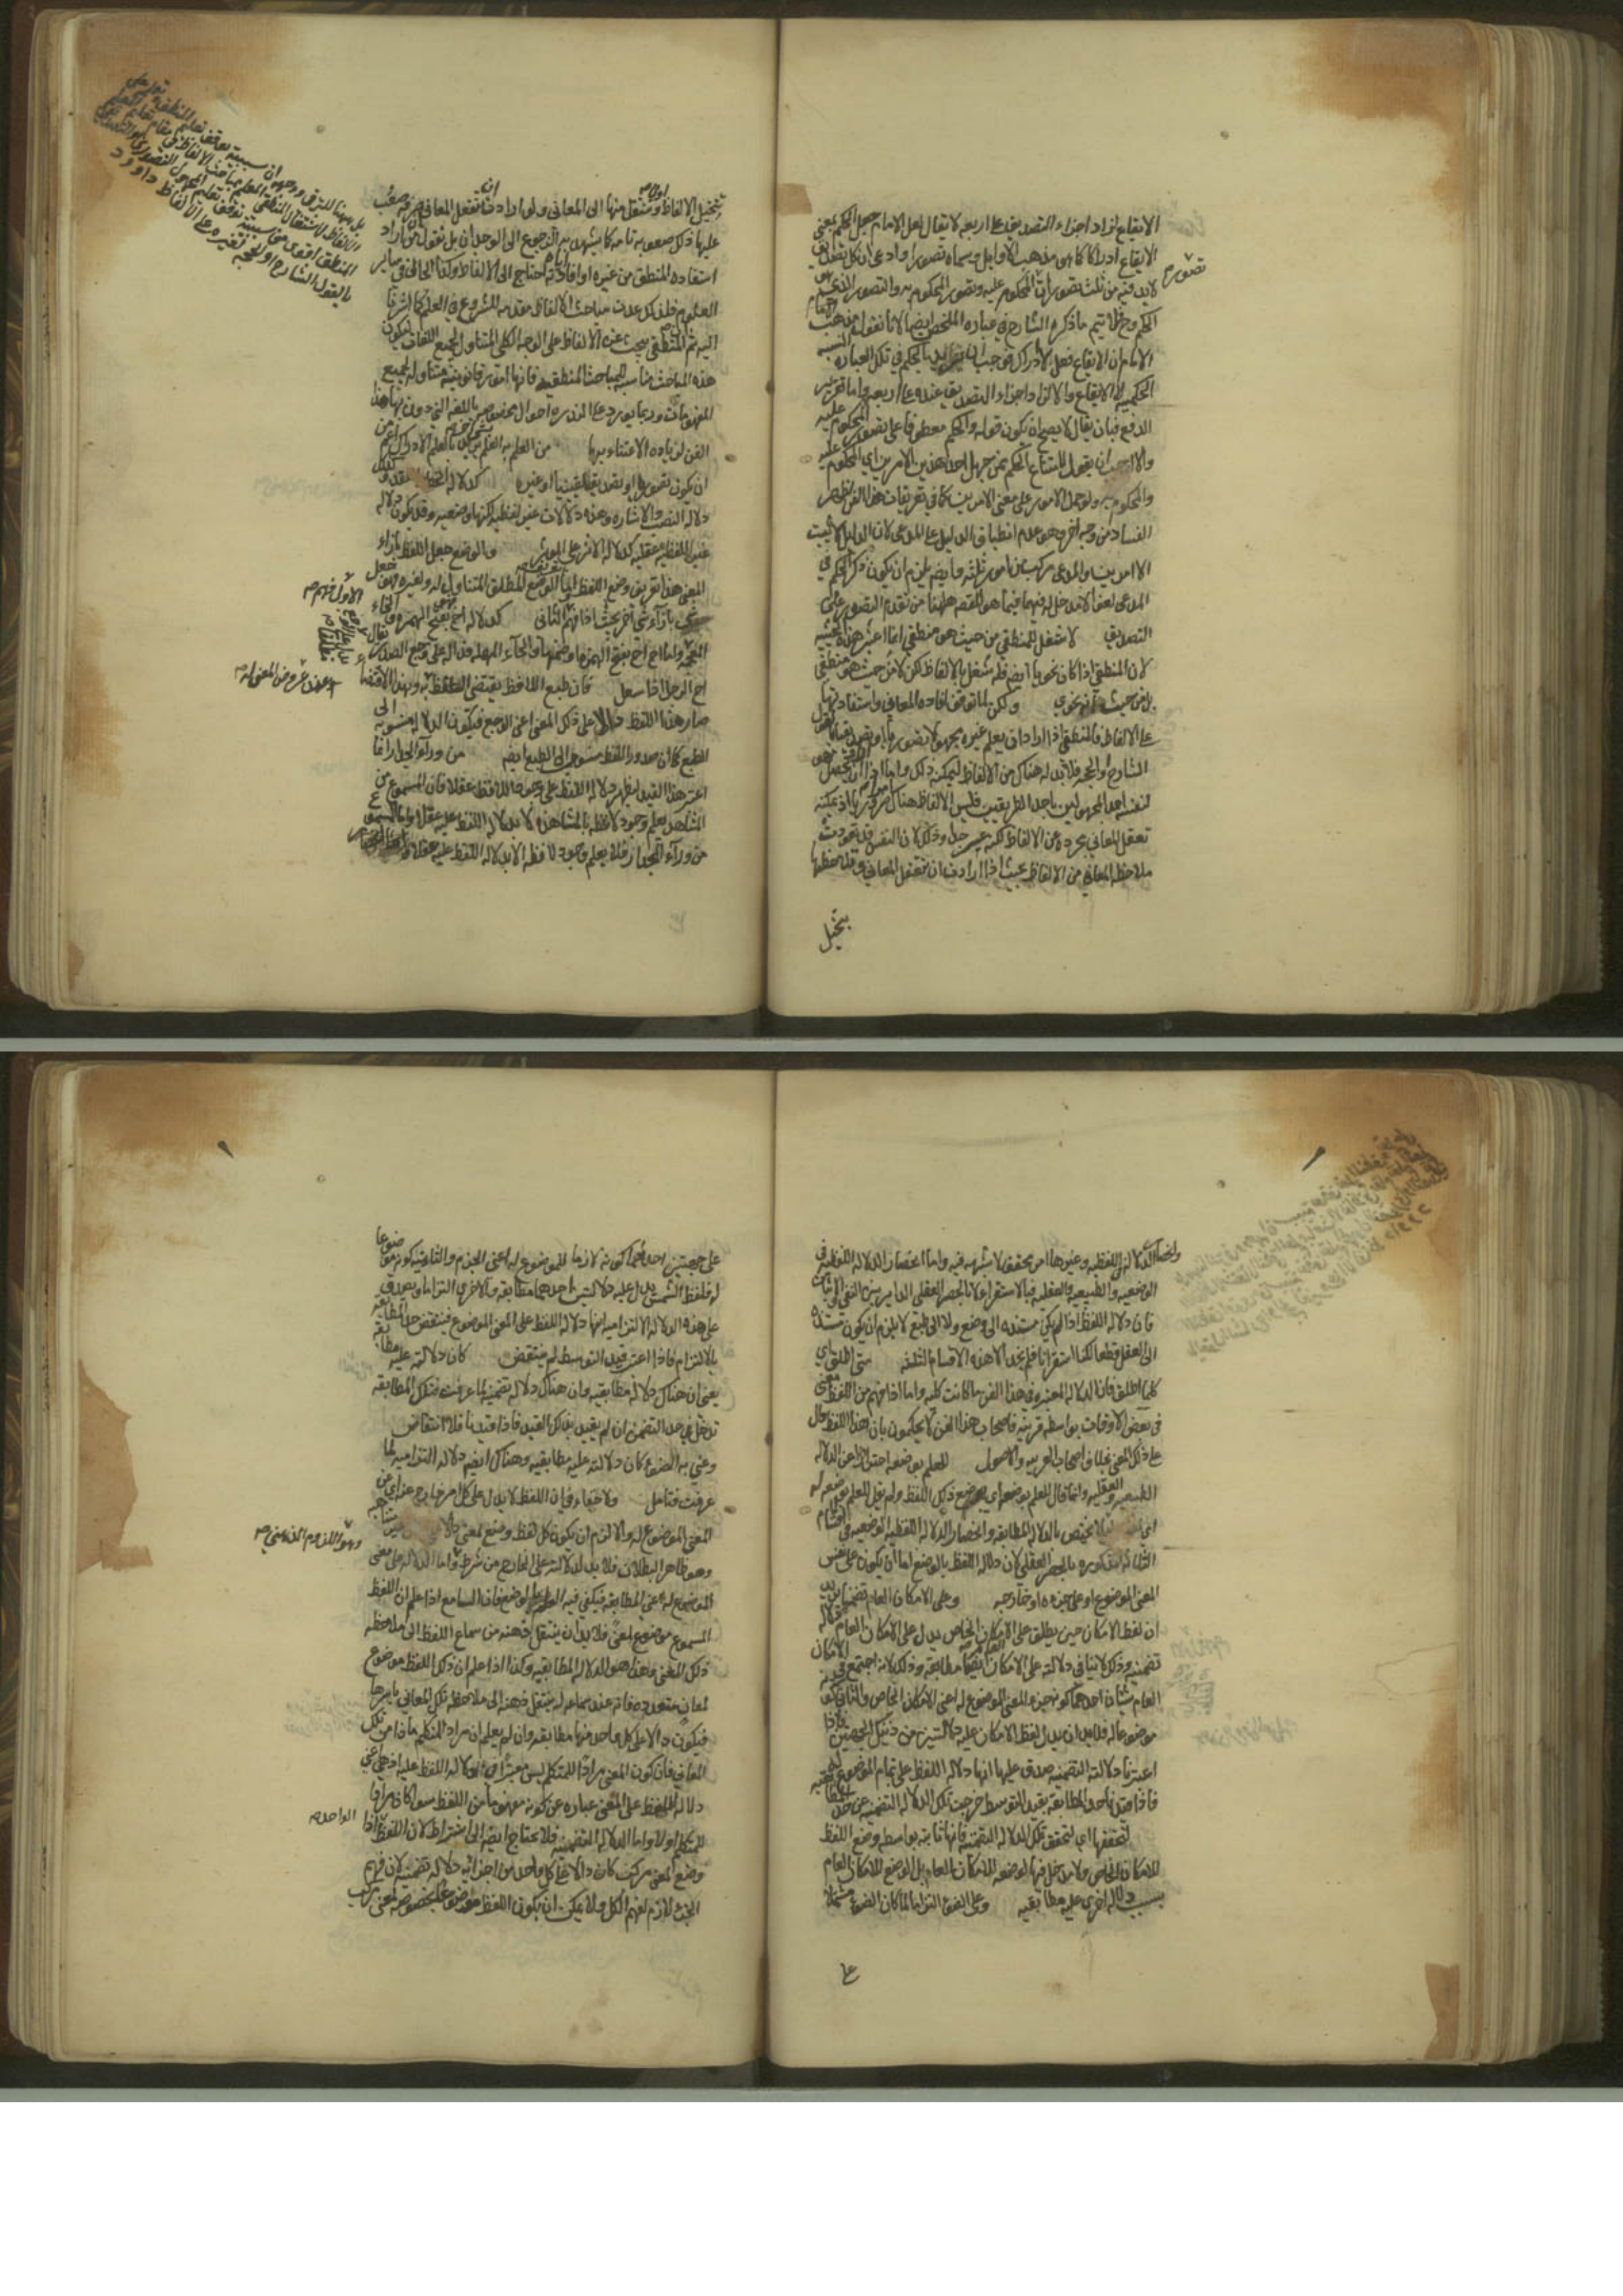 الايقاع لزاد اجزاء التصديق على اربعة لا يقال لعل الامام جعل الحكم بمعنى
الايقاع ادراكا كما هو مذهب الاوايل وسماه تصورا وادعى ان كل تصديق
لا بد فيه من ثلث تصورات تصور المحكوم عليه وتصور المحكوم به والتصور الذى هو
الحكم وح يتم ما ذكره الشارح فى عبارة الملخص ايضا لانا نقول مذهب
الامام ان الايقاع فعل لا ادراك فوجب ان يريد بالحكم فى تلك العبارة النسبة
الحكمية لا الايقاع والا لزاد اجزاء التصديق عنده على اربعة واما تقرير
الدفع فبان يقال لا يصح ان يكون قوله والحكم معطوفا على تصور المحكوم عليه
والا لوجب ان يقول لامتناع الحكم ممن جهل احد هذين الامرين اى المحكوم عليه
والمحكوم به ولو حمل الامور على معنى الامرين كما فى تعريفات هذا الفن لظهر
الفساد من وجه اخر وهو عدم انطباق الدليل على المدعى لان الدليل لا يثبت
الا امرين والمدعى مركب من امور ثلثة وايضه يلزم ان يكون ذكر الحكم فى
المدعى لغوا لا دخل له فيما هو المقصود ههنا من تقدم التصور على
التصديق لا شغل للمنطقى من حيث هو منطقى انما اعتبر هذه الحيثية
لان المنطقى اذا كان نحويا ايضه فله شغل بالالفاظ لكن لا من حيث هو منطقى
بل من حيث انه نحوى ولكن لما توقف افادة المعانى واستفادتها
على الالفاظ فالمنطقى اذا اراد ان يعلم غيره مجهولا تصوريا او تصديقيا بالقول
الشارح او الحجة فلا بد له هناك من الالفاظ ليمكنه ذلك واما اذا اراد ان يحصل هو
لنفسه احد المجهولين باحد الطريقين فليس الالفاظ هناك ضروريا اذ يمكنه
تعقل المعانى مجردة عن الالفاظ لكنه عسر جدا وذلك لان النفس قد تعودت
ملاحظة المعانى من الالفاظ بحيث اذا ارادت ان تتعقل المعانى وتلاحظها
تتخيل
تصور م
تتخيل الالفاظ اولا وتنتقل منها الى المعانى ولو ارادت ان تعقل المعانى صرفة صعب
عليها ذلك صعوبة تامة كما يشهد به الرجوع الى الوجدان بل نقول من اراد
استفادة المنطق من غيره او افادته اياه احتاج الى الالفاظ وكذا الحال فى ساير
العلوم فلذلك عدت مباحث الالفاظ مقدمة للشروع فى العلم كما اشرنا
اليه ثم المنطقى يبحث عن الالفاظ على الوجه الكلى المتناول لجميع اللغات ليكون
هذه المباحث مناسبة للمباحث المنطقية فانها امور قانونية متناولة لجميع
المفهومات وربما يورد على الندرة احوال مخصوصة باللغة التى دون بها هذا
الفن لزيادة الاعتناء بها من العلم به العلم بشىء اخر يريد بالعلم الادراك اعم من
ان يكون تصوريا او تصديقيا يقينيا او غيره كدلالة الخط والعقد و
دلالة النصب والاشارة وهذه دلالات غير لفظية لكنها وضعية وقد يكون دلالة
غير اللفظية عقلية كدلالة الاثر على المؤثر والوضع جعل اللفظ بازاء
المعنى هذا تعريف وضع اللفظ واما الوضع المطلق المتناول له ولغيره فهو جعل
شىء بازاء شىء اخر بحيث اذا فهم الثانى كدلالة اح بفتح الهمزة والخاء
المعجمة واما اح اح بفتح الهمزة وضمها والحاء المهملة فدالة على وجع الصدر يقال
اح الرجل اذا سعل فان طبع اللافظ يقتضى التلفظ به وبهذا الاقتضا
صار هذا اللفظ دالا على ذلك المعنى اعنى الوجع فيكون الدلالة منسوبة الى
الطبع كما ان صدور اللفظ منسوب الى الطبع ايضه من وراء الجدار انما
اعتبر هذا القيد ليظهر دلالة اللفظ على وجود اللافظ عقلا فان المسموع من
المشاهد يعلم وجود لافظه بالمشاهدة لا بدلالة اللفظ عليه عقلا واما المسموع
من وراء الجدار فلا يعلم وجود لافظه الا بدلالة اللفظ عليه عقلا
الاول فهم صح
وانحصار الدلالة فى اللفظية وغيرها امر محقق لا شبهة فيه واما انحصار الدلالة اللفظية فى
الوضعية والطبيعية والعقلية فبالاستقراء لا بالحصر العقلى الداير بين النفى والاثبات
فان دلالة اللفظ اذا لم يكن مستندة الى وضع ولا الى طبع لا يلزم ان يكون مستندة
الى العقل قطعا لكنا استقرينا فلم نجد الا هذه الاقسام الثلثة متى اطلق اى
كلما اطلق فان الدلالة المعتبرة فى هذا الفن ما كانت كلية واما اذا فهم من اللفظ معنى
فى بعض الاوقات بواسطة قرينة فاصحاب هذا الفن لا يحكمون بان هذا اللفظ دال
على ذلك المعنى بخلاف اصحاب العربية والاصول للعلم بوضعه احتراز عن الدلالة
الطبيعية والعقلية وانما قال للعلم بوضعه اى بوضع ذلك اللفظ ولم يقل للعلم بوضعه له
لئلا يختص بالدلالة المطابقة وانحصار الدلالة اللفظية الوضعية فى الاقسام
الثلثة المذكورة بالحصر العقلى لان دلالة اللفظ بالوضع اما ان يكون على نفس
المعنى الموضوع له او على جزءه او خارجه وعلى الامكان العام تضمنا يريد
ان لفظ الامكان حين يطلق على الامكان الخاص يدل على الامكان العام دلالة
تضمنية وذلك لا ينافى دلالته على الامكان العام ايضا مطابقة وذلك لانه اجتمع فى الامكان
العام شيئان احدهما كونه جزء للمعنى الموضوع له اعنى الامكان الخاص والثانى كونه
موضوعا له فلا بد ان يدل لفظ الامكان عليه دلالتين من ذينك الجهتين فاذا
اعتبرنا دلالته التضمنية صدق عليها انها دلالة اللفظ على تمام الموضوع له
فاذا قيد حد المطابقة بقيد التوسط خرجت تلك الدلالة التضمنية عن حد المطابقة
لتحققها اى لتحقق تلك الدلالة التضمنية فانها ثابتة بواسطة وضع اللفظ
للامكان الخاص ولا دخل فيها لوضعه للامكان العام بل الوضع للامكان العام
سبب دلالة اخرى عليه مطابقية وعلى الضوء التزاما لما كان الضوء مشتملا
على
على جهتين احديهما كونه لازما للموضوع له اعنى الجرم والثانية كونه موضوعا
له فلفظ الشمس يدل عليه دلالتين احدهما مطابقة والاخرى التزاما ويصدق
على هذه الدلالة الالتزامية انها دلالة اللفظ على المعنى الموضوع له فينتقض حد المطابقة
بالالتزام فاذا اعتبر قيد التوسط لم ينتقض كان دلالته عليه مطابقة
يعنى ان هناك دلالة مطابقية وان هناك دلالة تضمنية لما عرفت فتلك المطابقة
تدخل فى حد التضمن ان لم يقيد بذلك القيد فاذا قيد به فلا انتقاض
وعنى به الضوء كان دلالته عليه مطابقية وهناك ايضه دلالة التزامية لما
عرفت فتامل ولا خفاء فى ان اللفظ لا يدل على كل امر خارج عنه اى عن
المعنى الموضوع له والا لزم ان يكون كل لفظ وضع لمعنى دالا على معان غير متناهية
وهو ظاهر البطلان فلا بد لدلالته على الخارج من شرط واما الدلالة على معنى
الموضوع له اعنى المطابقة فيكفى فيها العلم بالوضع فان السامع اذا علم ان اللفظ
المسموع موضوع لمعنى فلا بد ان ينتقل ذهنه من سماع اللفظ الى ملاحظة
ذلك المعنى وهذا هو الدلالة المطابقية وكذا اذا علم ان ذلك اللفظ موضوع
لمعان متعددة فانه عند سماعه له ينتقل ذهنه الى ملاحظة تلك المعانى باسرها
فيكون دالا على كل واحد منها مطابقة وان لم يعلم ان مراد المتكلم ماذا من تلك
المعانى فان كون المعنى مرادا للمتكلم ليس معتبرا فى دلالة اللفظ عليه اذ هى اعنى
دلالة اللفظ على المعنى عبارة عن كونه مفهوما من اللفظ سواء كان مرادا
للمتكلم او لا واما الدلالة التضمنية فلا يحتاج ايضه الى اشتراط لان اللفظ اذا
وضع لمعنى مركب كان دالا على كل واحد من اجزائه دلالة تضمنية لان فهم
الجزء لازم لفهم الكل ولا يمكن ان يكون اللفظ موضوعا بخصوصه لمعنى مركب
وهو اللزوم الذهنى صح
الواحد صح